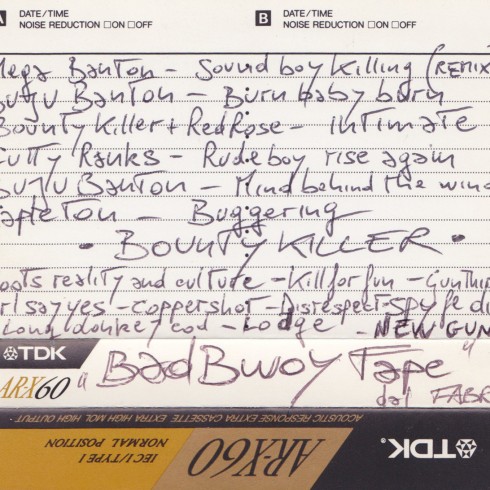 A DATE/TIME
NOISE REDUCTION □ON □OFF
B DATE/TIME
NOISE REDUCTION □ON □OFF
Mega Banton - Sound boy Killing (REMIX
Buju Banton - Burn baby burn
Bounty Killer + Red Rose - intimate
Cutty Ranks - Rude boy rise again
Buju Banton - Mind behind the wind
Capleton - Buggering
• BOUNTY KILLER •
oots reality and culture - Kill for fun - Gunthin
rl say yes - Coppershot - Disrespect - spy fe di
Long donkey cod - Lodge - NEW GUN
TDK
AR-X60
"Bad Bwoy Tape"
dal FABR
ACOUSTIC RESPONSE EXTRA CASSETTE EXTRA HIGH MOL HIGH OUTPUT -
IEC I/TYPE I
NORMAL POSITION
AR-X60
TDK®